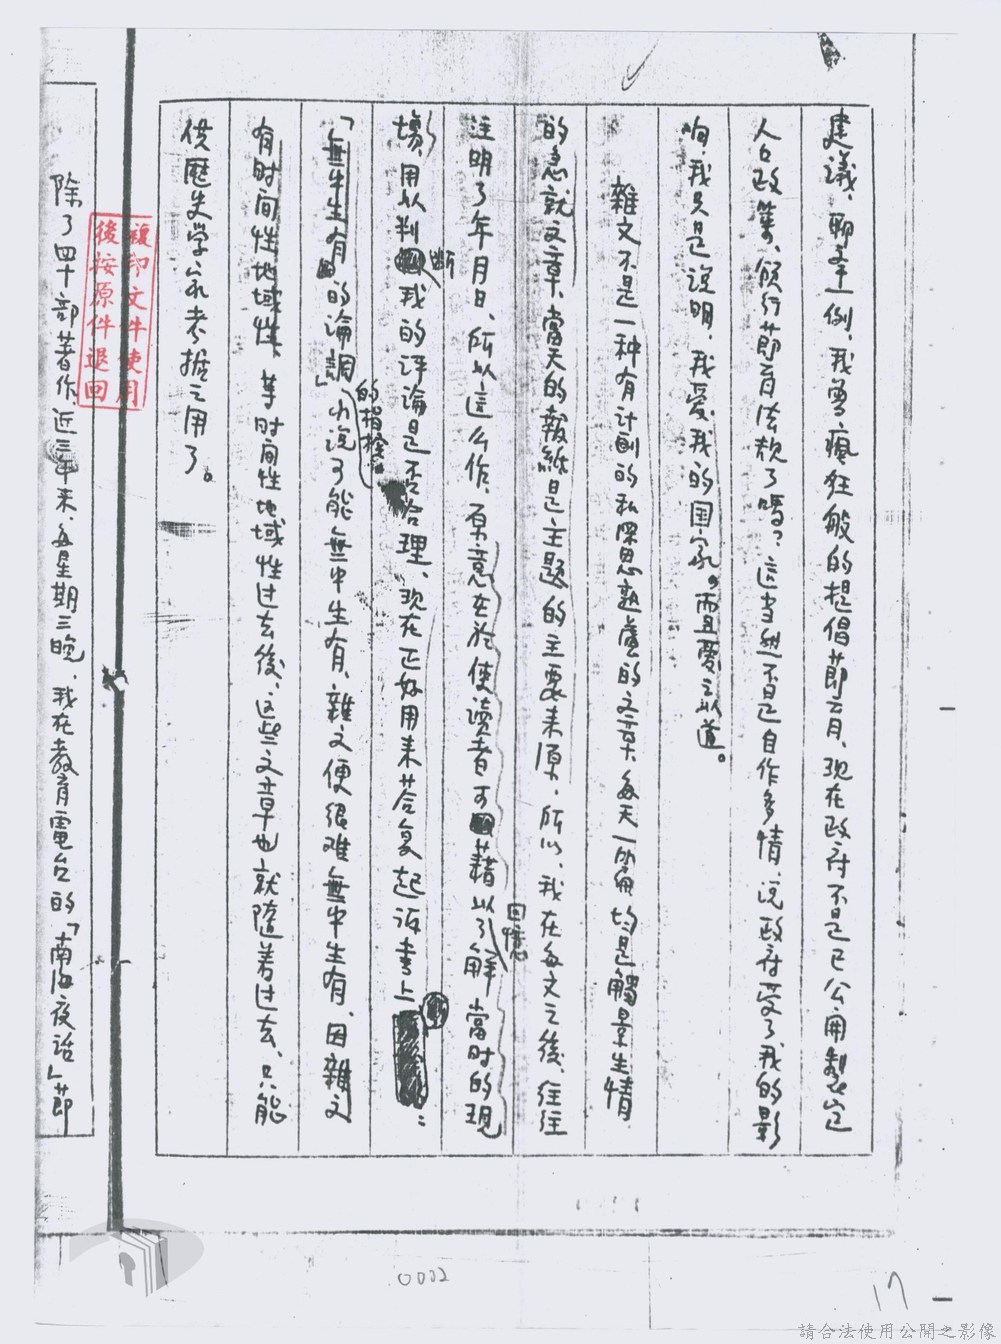 建議，聊舉一例，我曾瘋狂般的提倡節育，現在政府不是已公開製定
人口政策，頒行節育法規了嗎？這当然不是自作多情，说政府受了我的影
响，我只是说明，我爱我的国家。而且爱之以道。
雜文不是一种有计劃的私深思熟慮的文章，每天一篇均是觸景生情
的急就文章，當天的報紙是主題的主要来原，所以，我在每文之後，往往
注明了年月日，所以這么作，原意在於使读者可藉以了解回憶當时的現
場，用以判斷我的评論是否合理，现在正好用来荅复起诉書上：
「無中生有的論調」的指控。小说可能無中生有，雜文便很难無中生有，因雜文
有时间性地域性，等时间性地域性过去後，这些文章也就隨着过去，只能
供歷史学家考据之用了。
除了四十部著作，近三年来，每星期三晚，我在教育電台的「南海夜话」節
複印文件使用
後按原件退回
0002
17
請合法使用公開之影像